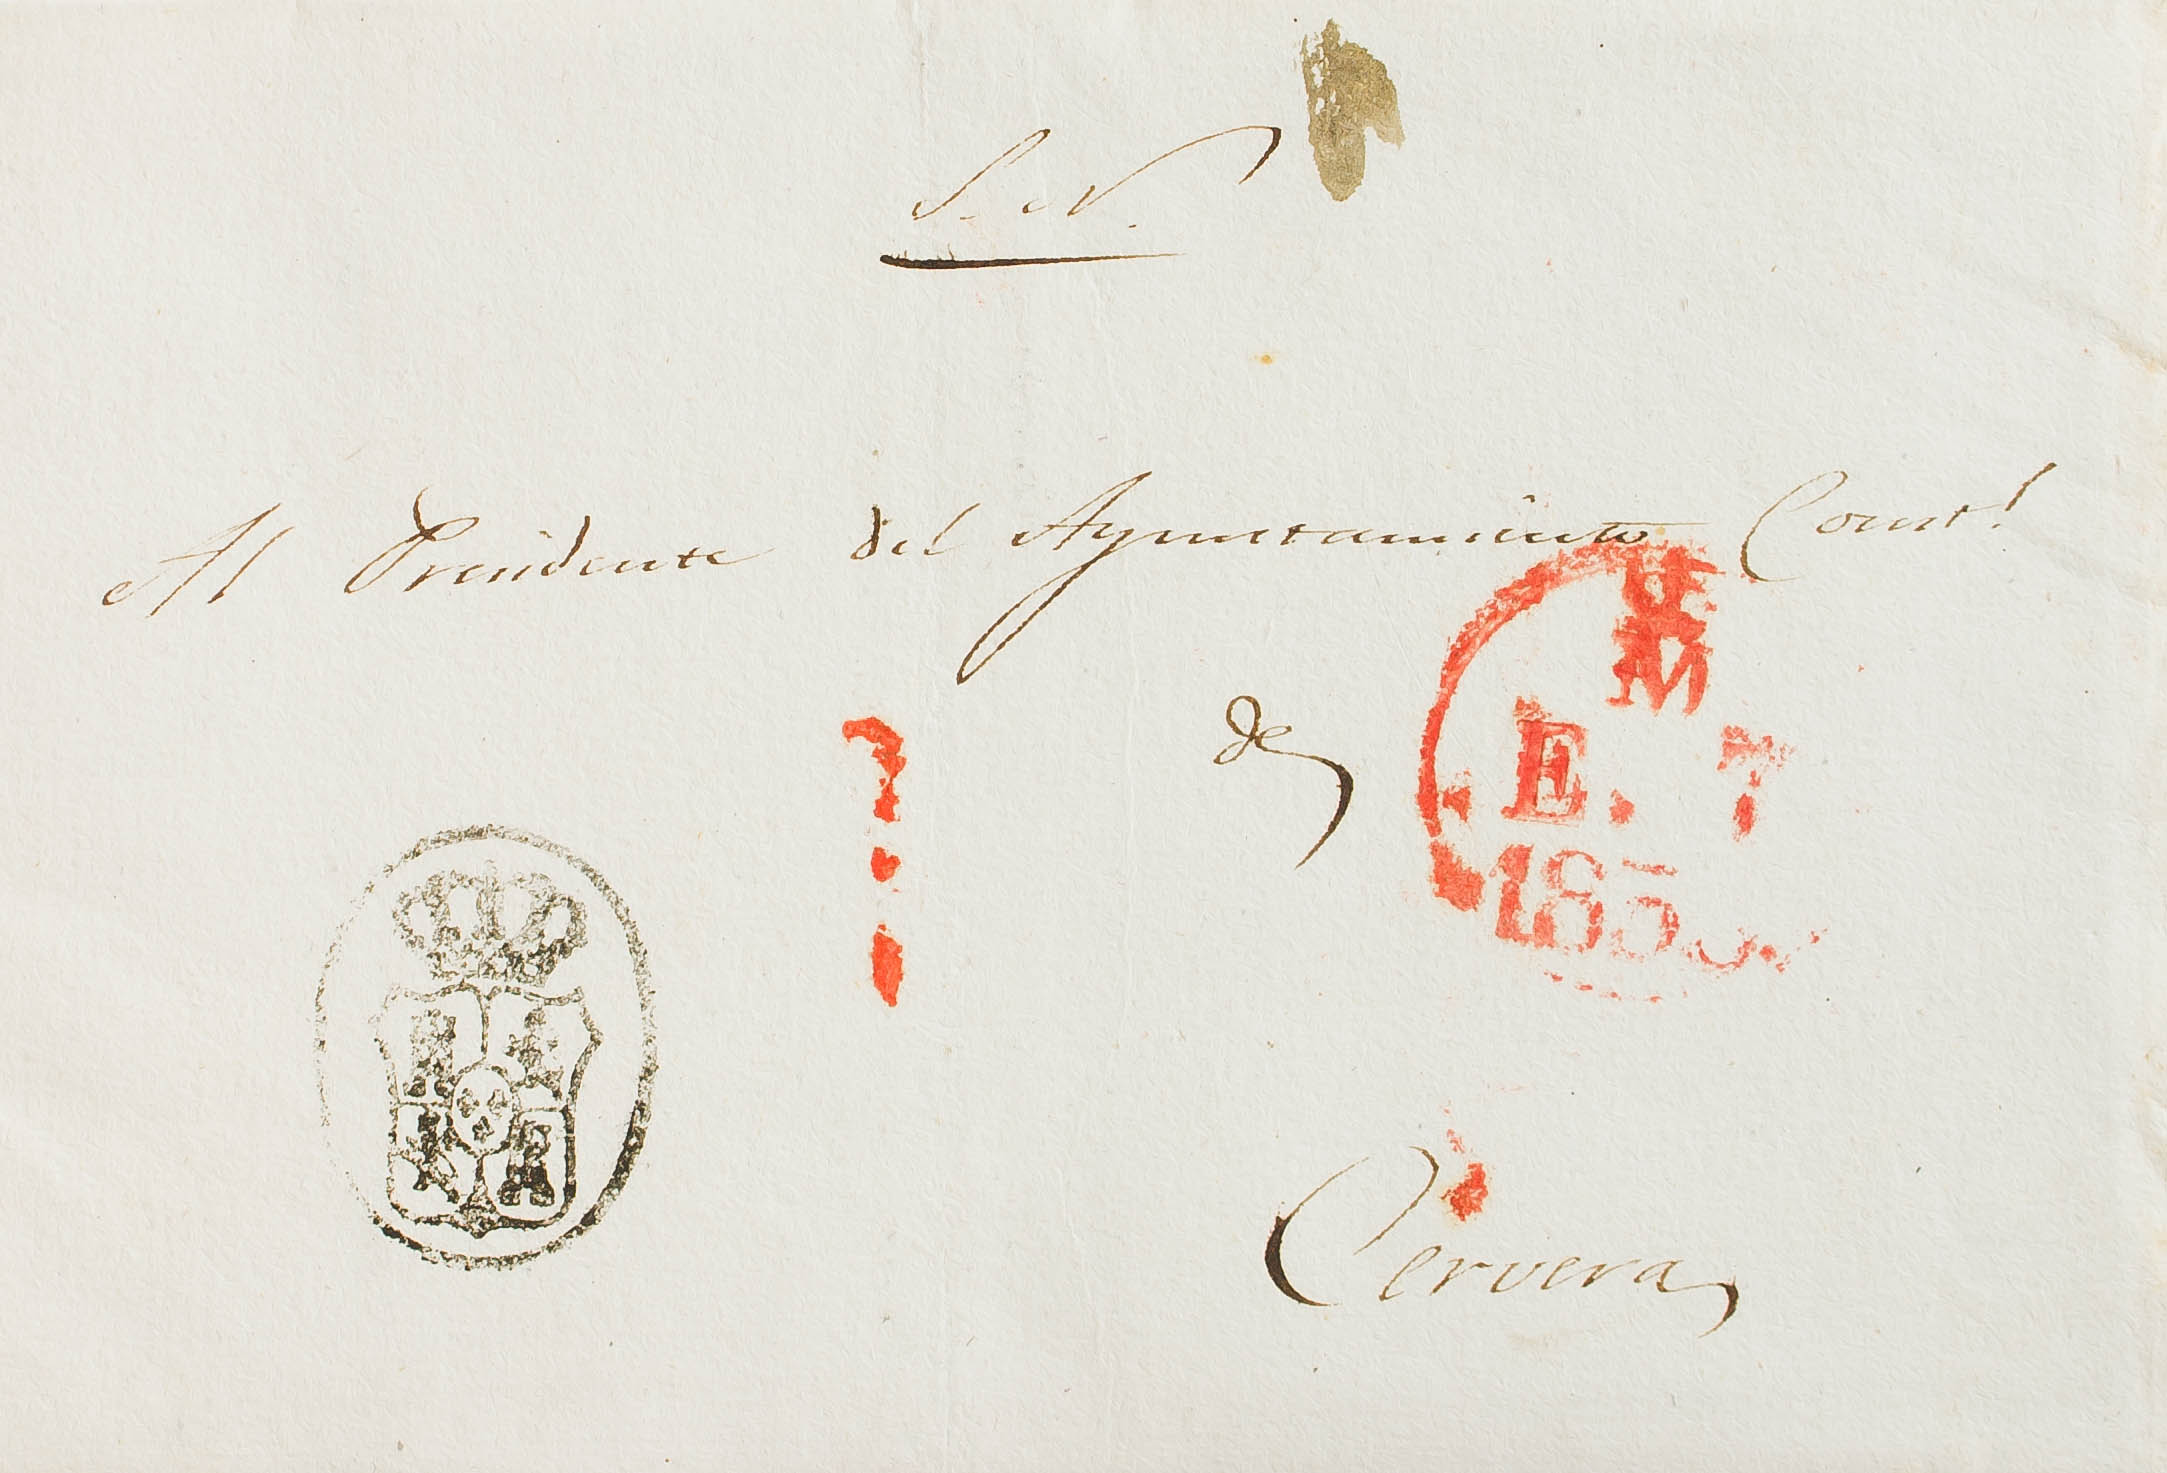 S. N.
Al Presidente del Ayuntamiento Const.l
de
M
E. 7
185
Cervera